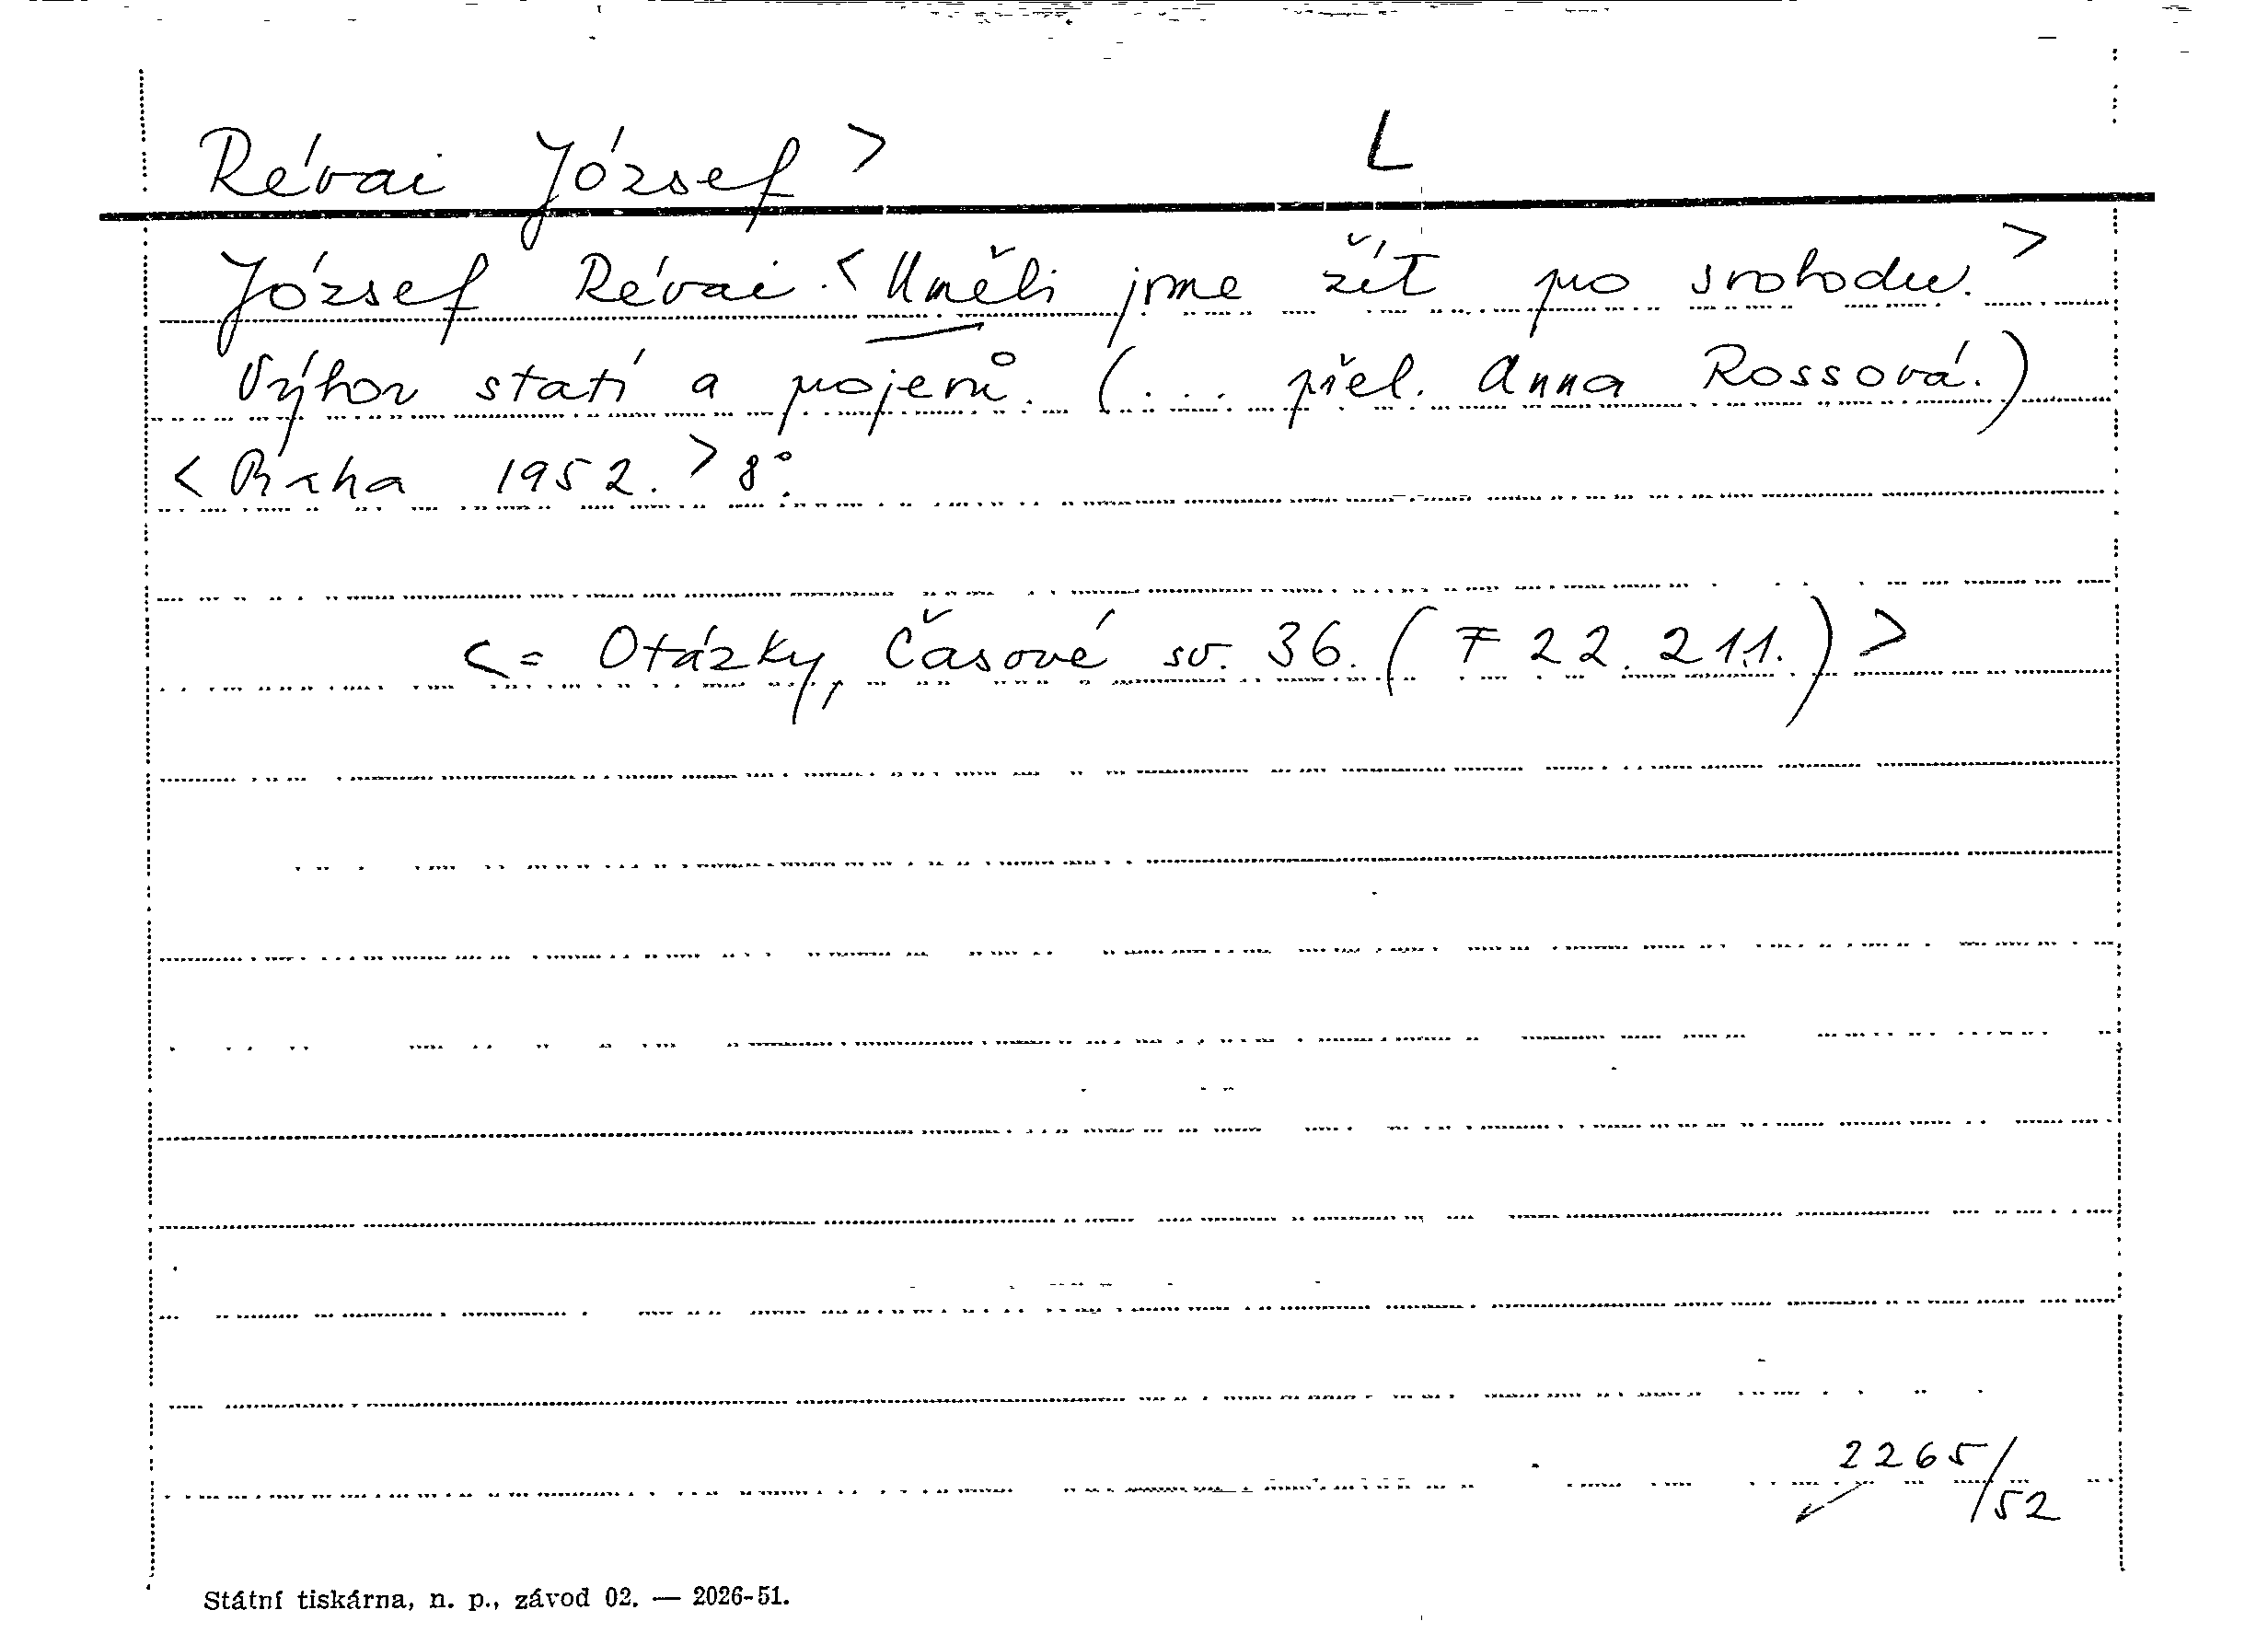 Révai József > L
József Révai. < Uměli jsme žít pro svobodu. >
Výbor statí a projevů. (... přel. Anna Rossová.)
< Praha 1952. > 8°.
< = Otázky, Časové sv. 36. (F 22.211.) >
2265/52
Státní tiskárna, n. p., závod 02. — 2026-51.